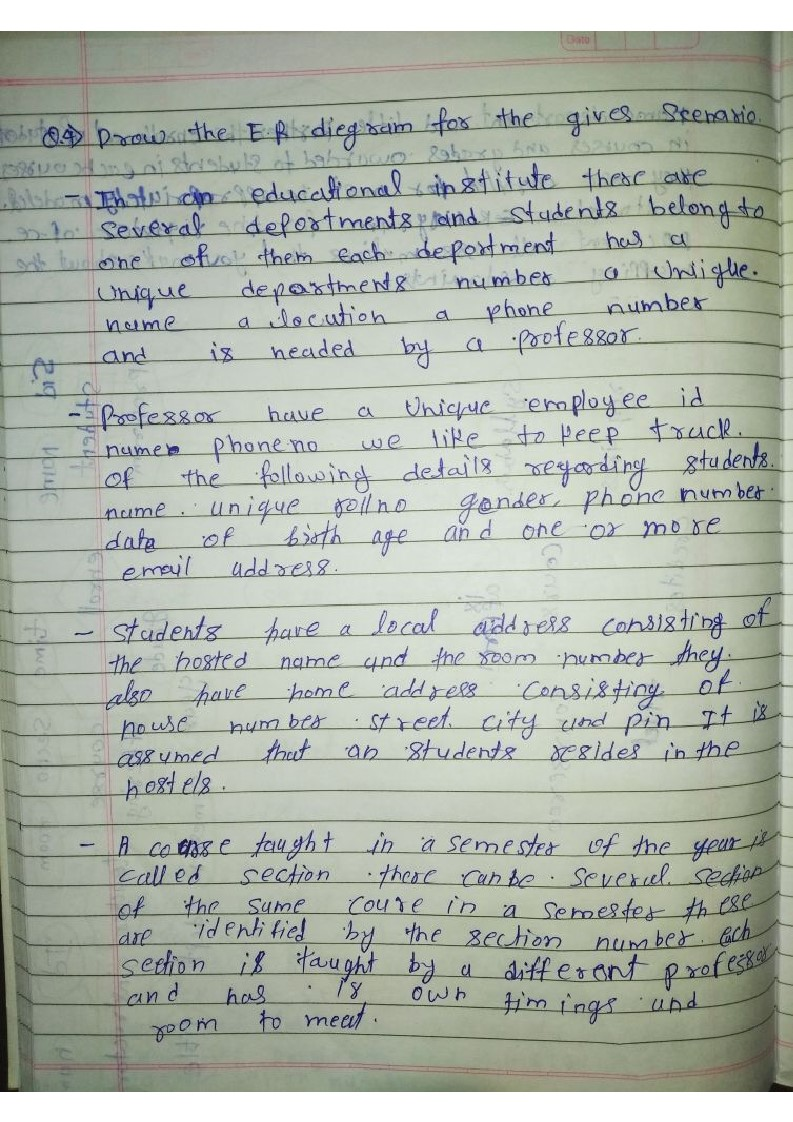 Q.4) Drow the E R diegram for the gives Scenario.
- In an educational institute there are
several defortments and students belong to
one of them each department has a
Unique departments number a Uniighe.
name a locution a phone number
and is neaded by a professor.
- Professor have a Unique employee id
name phoneno we like to keep truck.
of the following details regarding students.
name. unique rollno gender, phone number.
data of birth age and one or more
email address.
- Students have a local address consisting of
the hosted name and the room number they.
also have home address consisting of
house number street. city und pin It is
assumed that an students resides in the
hostels.
- A course taught in a semester of the year is
called section there canbe. several section
of the same coure in a semester these
are identified by the section number. each
section is taught by a different professor
and has is own timings und
room to meat.